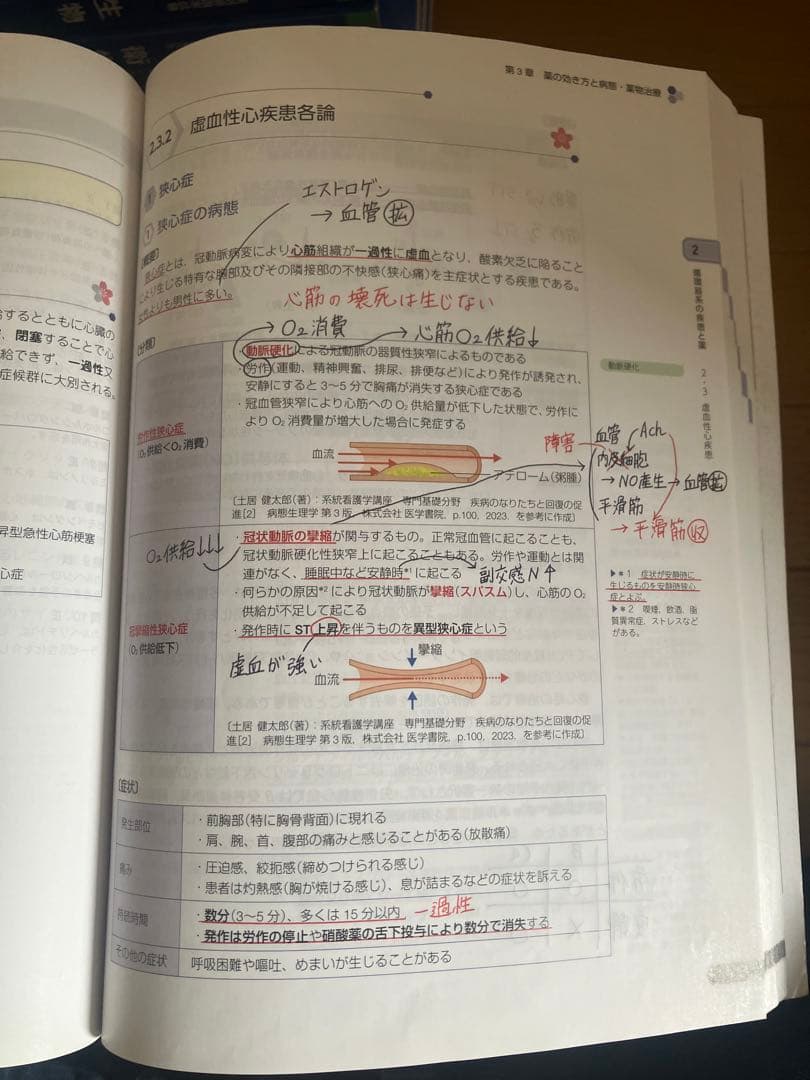 第3章 薬の効き方と病態・薬物治療
2.3.2 虚血性心疾患各論
狭心症
1 狭心症の病態
エストロゲン
→血管拡
〔概要〕
狭心症とは、冠動脈病変により心筋組織が一過性に虚血となり、酸素欠乏に陥ること
により生じる特有な胸部及びその隣接部の不快感(狭心痛)を主症状とする疾患である。
女性よりも男性に多い。
心筋の壊死は生じない
→O₂消費 →心筋O₂供給↓
〔分類〕
労作性狭心症
(O₂供給<O₂消費)
・動脈硬化による冠動脈の器質性狭窄によるものである
・労作(運動、精神興奮、排尿、排便など)により発作が誘発され、
安静にすると3~5分で胸痛が消失する狭心症である
・冠血管狭窄により心筋へのO₂供給量が低下した状態で、労作に
よりO₂消費量が増大した場合に発症する
血流
アテローム(粥腫)
〔土居 健太郎(著):系統看護学講座 専門基礎分野 疾病のなりたちと回復の促
進[2] 病態生理学 第3版、株式会社 医学書院、p.100、2023、を参考に作成〕
O₂供給↓↓↓
冠攣縮性狭心症
(O₂供給低下)
・冠状動脈の攣縮が関与するもの。正常冠血管に起こることも、
冠状動脈硬化性狭窄上に起こることもある。労作や運動とは関
連がなく、睡眠中など安静時*¹に起こる
副交感N↑
・何らかの原因*²により冠状動脈が攣縮(スパスム)し、心筋のO₂
供給が不足して起こる
・発作時にST上昇を伴うものを異型狭心症という
虚血が強い
攣縮
血流
〔土居 健太郎(著):系統看護学講座 専門基礎分野 疾病のなりたちと回復の促
進[2] 病態生理学 第3版、株式会社 医学書院、p.100、2023、を参考に作成〕
〔症状〕
発生部位
・前胸部(特に胸骨背面)に現れる
・肩、腕、首、腹部の痛みと感じることがある(放散痛)
痛み
・圧迫感、絞扼感(締めつけられる感じ)
・患者は灼熱感(胸が焼ける感じ)、息が詰まるなどの症状を訴える
持続時間
・数分(3~5分)、多くは15分以内 一過性
・発作は労作の停止や硝酸薬の舌下投与により数分で消失する
その他の症状
呼吸困難や嘔吐、めまいが生じることがある
2
循環器系の疾患と薬
2・3 虚血性心疾患
動脈硬化
障害
血管 Ach
内皮細胞
→NO産生→血管拡
平滑筋
→平滑筋収
▶*1 症状が安静時に
生じるものを安静時狭心
症とよぶ。
▶*2 喫煙、飲酒、脂
質異常症、ストレスなど
がある。
給するとともに心臓の
、閉塞することで心
給できず、一過性又
症候群に大別される。
昇型急性心筋梗塞
心症
生物